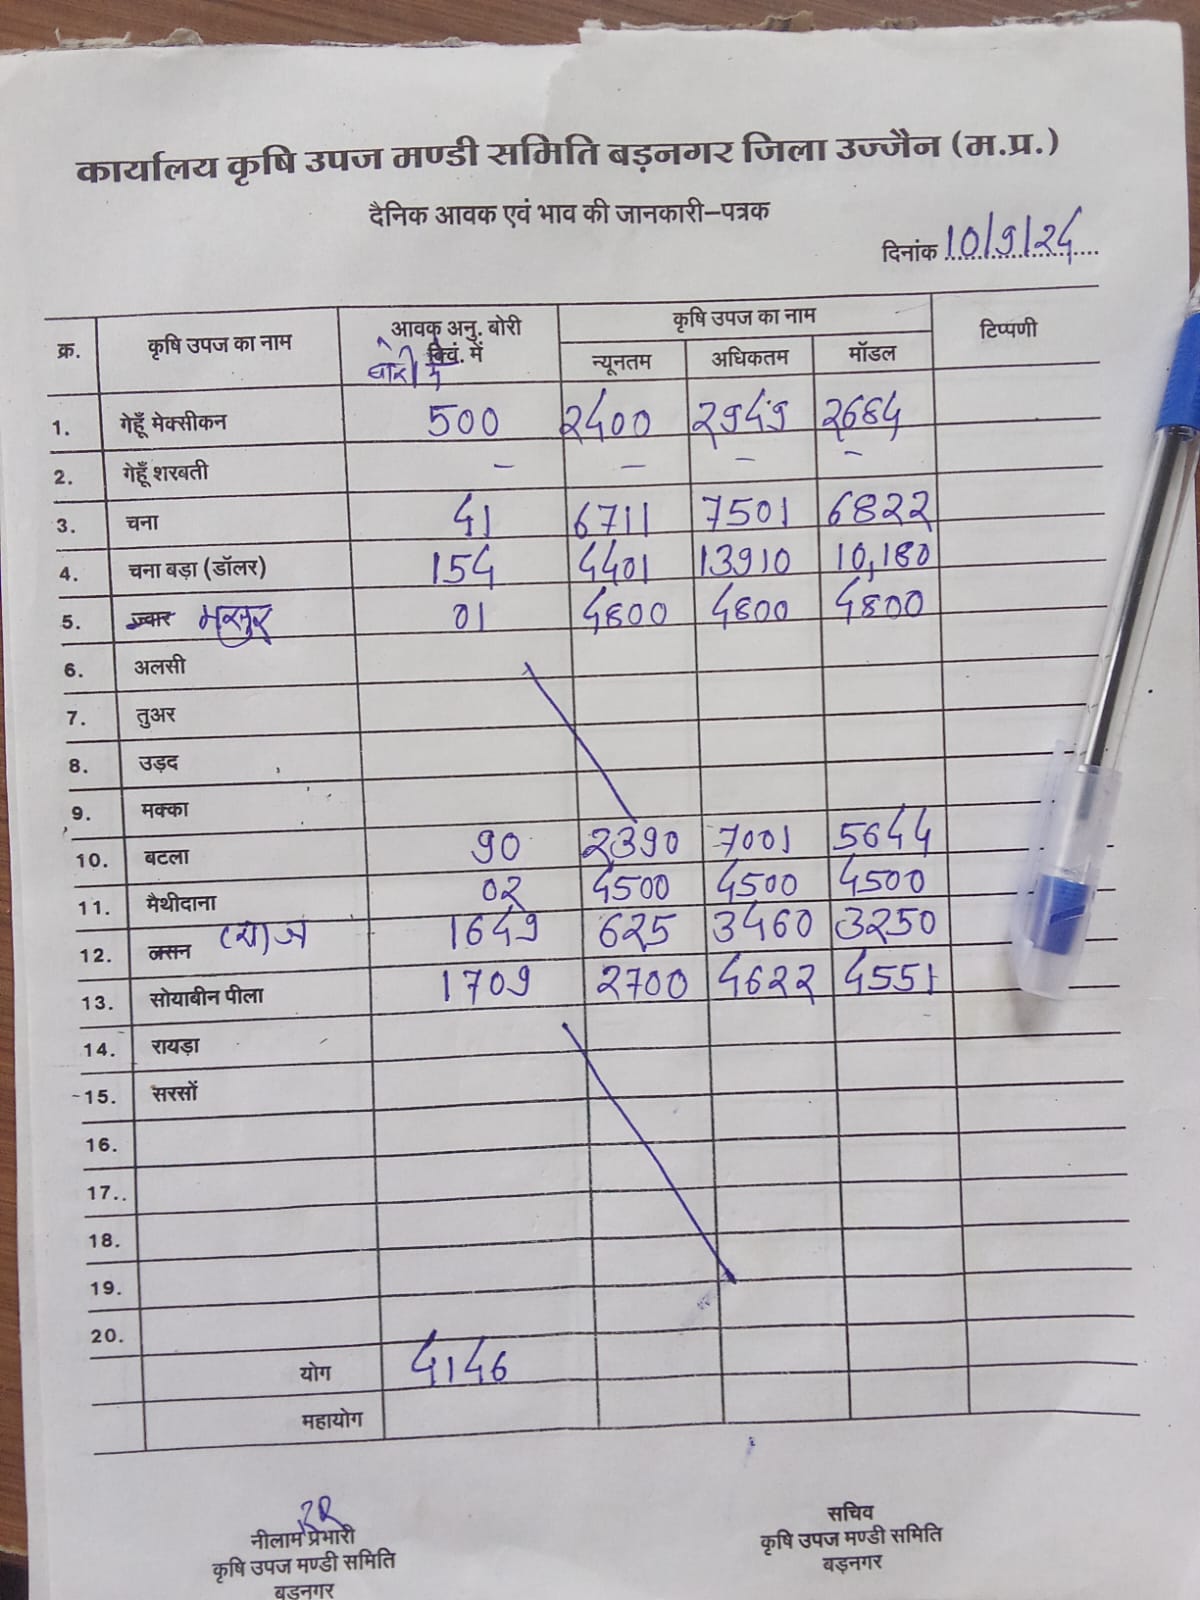 कार्यालय कृषि उपज मण्डी समिति बड़नगर जिला उज्जैन (म.प्र.)
दैनिक आवक एवं भाव की जानकारी–पत्रक
दिनांक 10/9/24
क्र. कृषि उपज का नाम आवक अनु. बोरी क्विं. में बोरी में कृषि उपज का नाम टिप्पणी
न्यूनतम अधिकतम मॉडल
1. गेहूँ मेक्सीकन 500 2400 2949 2684
2. गेहूँ शरबती – – – –
3. चना 41 6711 7501 6822
4. चना बड़ा (डॉलर) 154 4401 13910 10,180
5. ज्वार मसुर 01 4800 4800 4800
6. अलसी
7. तुअर
8. उड़द
9. मक्का
10. बटला 90 2390 7001 5644
11. मैथीदाना 02 4500 4500 4500
12. लसन प्याज 1649 625 3460 3250
13. सोयाबीन पीला 1709 2700 4622 4551
14. रायड़ा
15. सरसों
16.
17..
18.
19.
20.
योग 4146
महायोग
नीलाम प्रभारी
कृषि उपज मण्डी समिति
बड़नगर
सचिव
कृषि उपज मण्डी समिति
बड़नगर